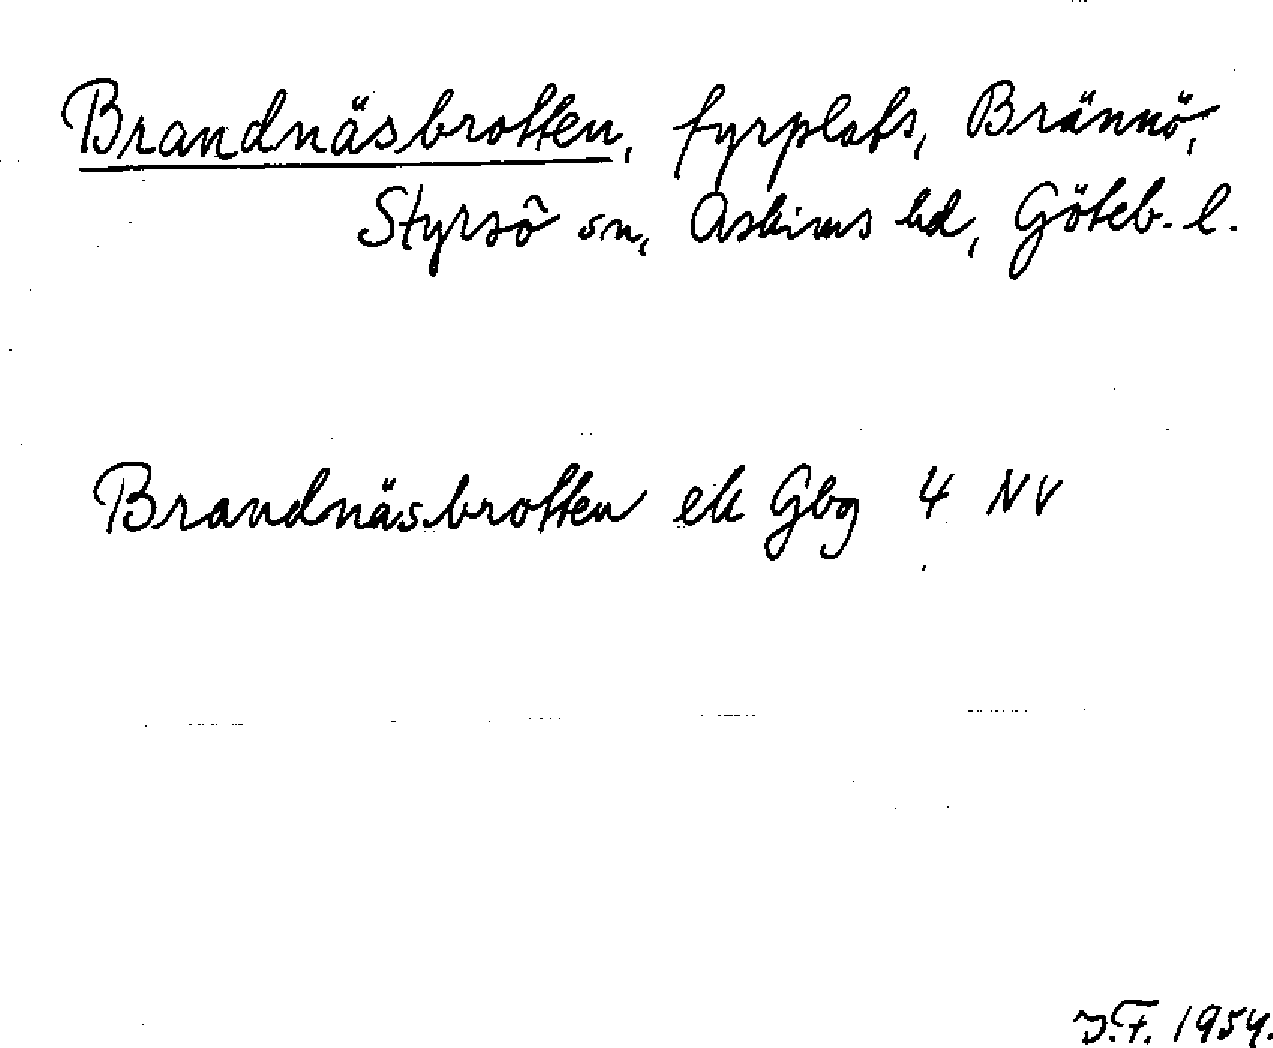 Brandnäsbrotten, fyrplats, Brännö,
Styrsö sn, Askims hd, Göteb. l.
Brandnäsbrotten ek Gbg 4 NV
J.F. 1954.